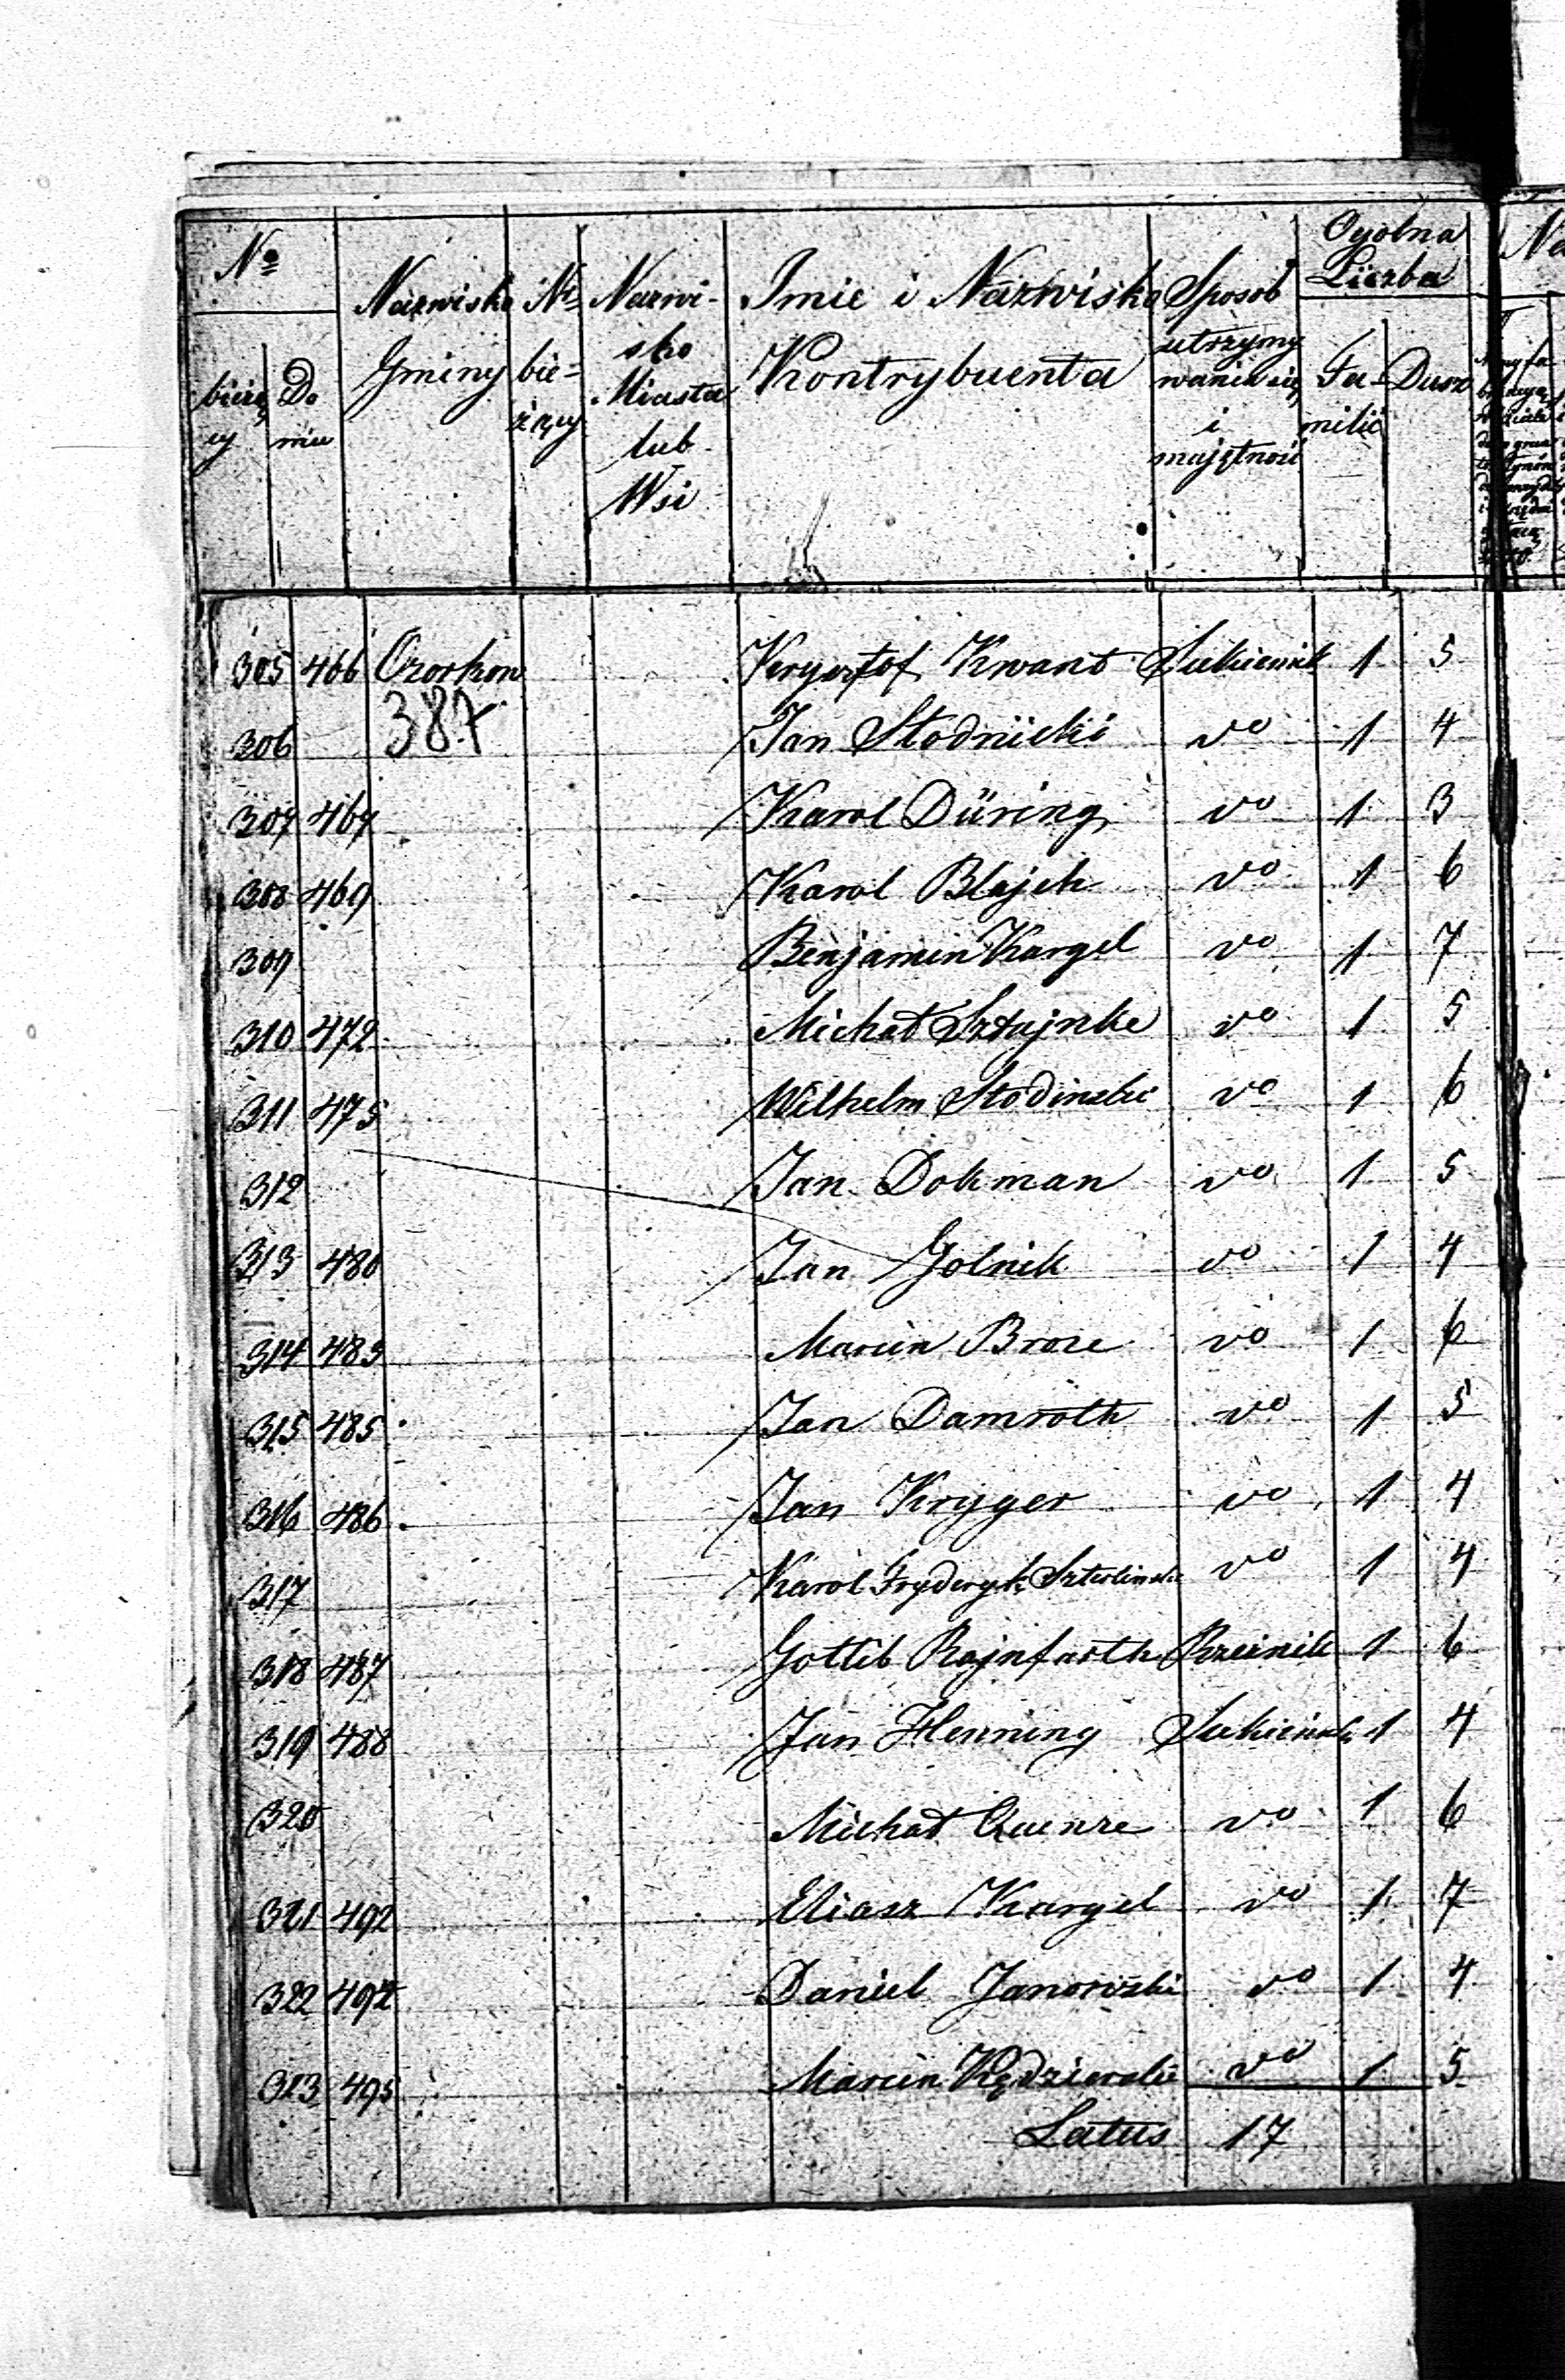 No
bieżący
Domu
Nazwisko Gminy
No bieżący
Nazwisko Miasta lub Wsi
Imie i Nazwisko Kontrybuenta
Sposob utrzymywania się i majętność
Ogolna Liczba
Familii
Dusz
305 466 Ozorkow Krysztof Kwant Sukiennik 1 5
387
306 Jan Stodnicki vo 1 4
307 467 Karol Düring vo 1 3
308 469 Karol Blajch vo 1 6
309 Benjamin Kargel vo 1 7
310 472 Michał Sztajnke vo 1 5
311 475 Wilhelm Stodinski vo 1 6
312 Jan Dokman vo 1 5
313 480 Jan Golnik vo 1 4
314 483 Marcin Broze vo 1 6
315 485 Jan Damroth vo 1 5
316 486 Jan Kryger vo 1 4
317 Karol Fryderyk vo 1 4
318 487 Gottlib Rajnfarth Rzeźnik 1 6
319 488 Jan Henning Sukiennik 1 4
320 Michał vo 1 6
321 492 Eliasz Kargel vo 1 7
322 494 Daniel Janowski vo 1 4
323 495 Marcin Kędzierski vo 1 5
Latus 17